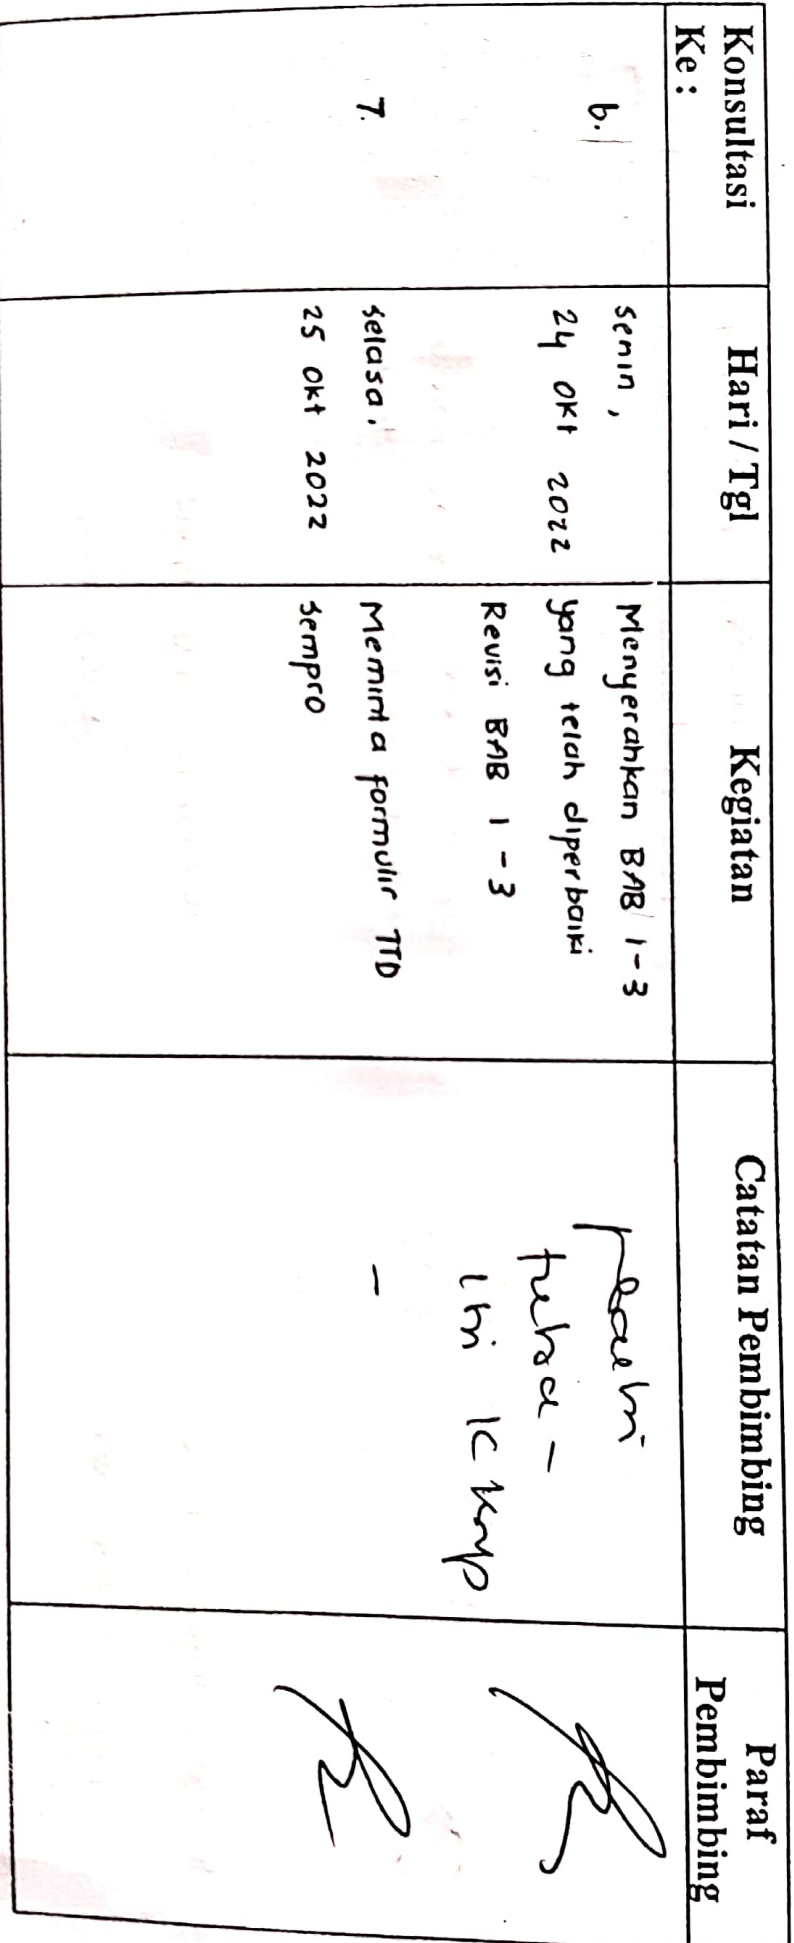 Konsultasi
Ke :
Hari / Tgl
Kegiatan
Catatan Pembimbing
Paraf
Pembimbing
6.
Senin,
24 Okt 2022
Menyerahkan BAB 1-3
yang telah diperbaiki
Revisi BAB 1-3
7.
Selasa,
25 Okt 2022
Meminta formulir TTD
Sempro
-